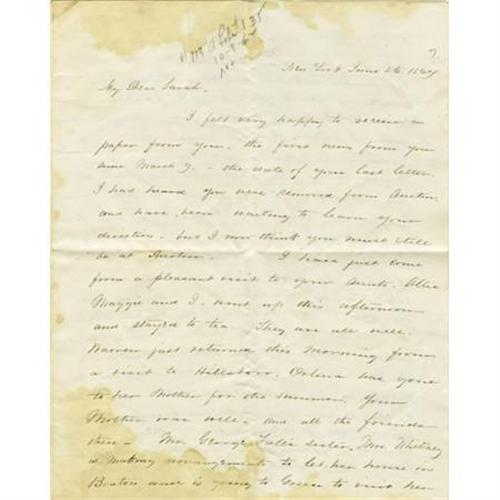 7.
New York June 26 1867
My Dear Sarah.
I felt very happy to receive a
paper from you, the first news from you
since March 9 - the date of your last letter.
I had heard you were removed from Austin,
and have been waiting to learn your
direction - but I now think you must still
be at Austin. I have just come
from a pleasant visit to your Aunts. Allie
Maggie and I went up this afternoon
and stayed to tea. They are all well.
Warren just returned this morning from
a visit to Hillsboro. has gone
to her Mother for the summer. Your
Mother was well - and all the friends
there - Mr. George sister, Mrs. Whitney
is making arrangements to let her house in
Boston and is going to to visit her